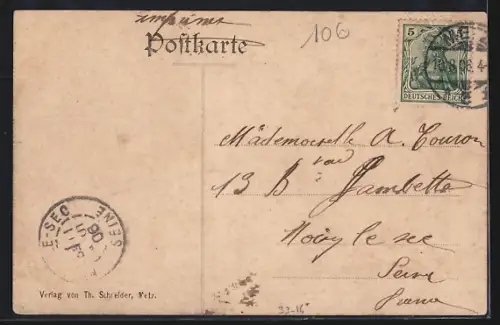 imprimés
Postkarte
106
5
DEUTSCHES REICH
Mademoiselle A. Couron
13 Bvard Gambetta
Noisy le sec
Seine
France
E-SEC
SEINE
Verlag von Th. Schreider, Metz.
33-16